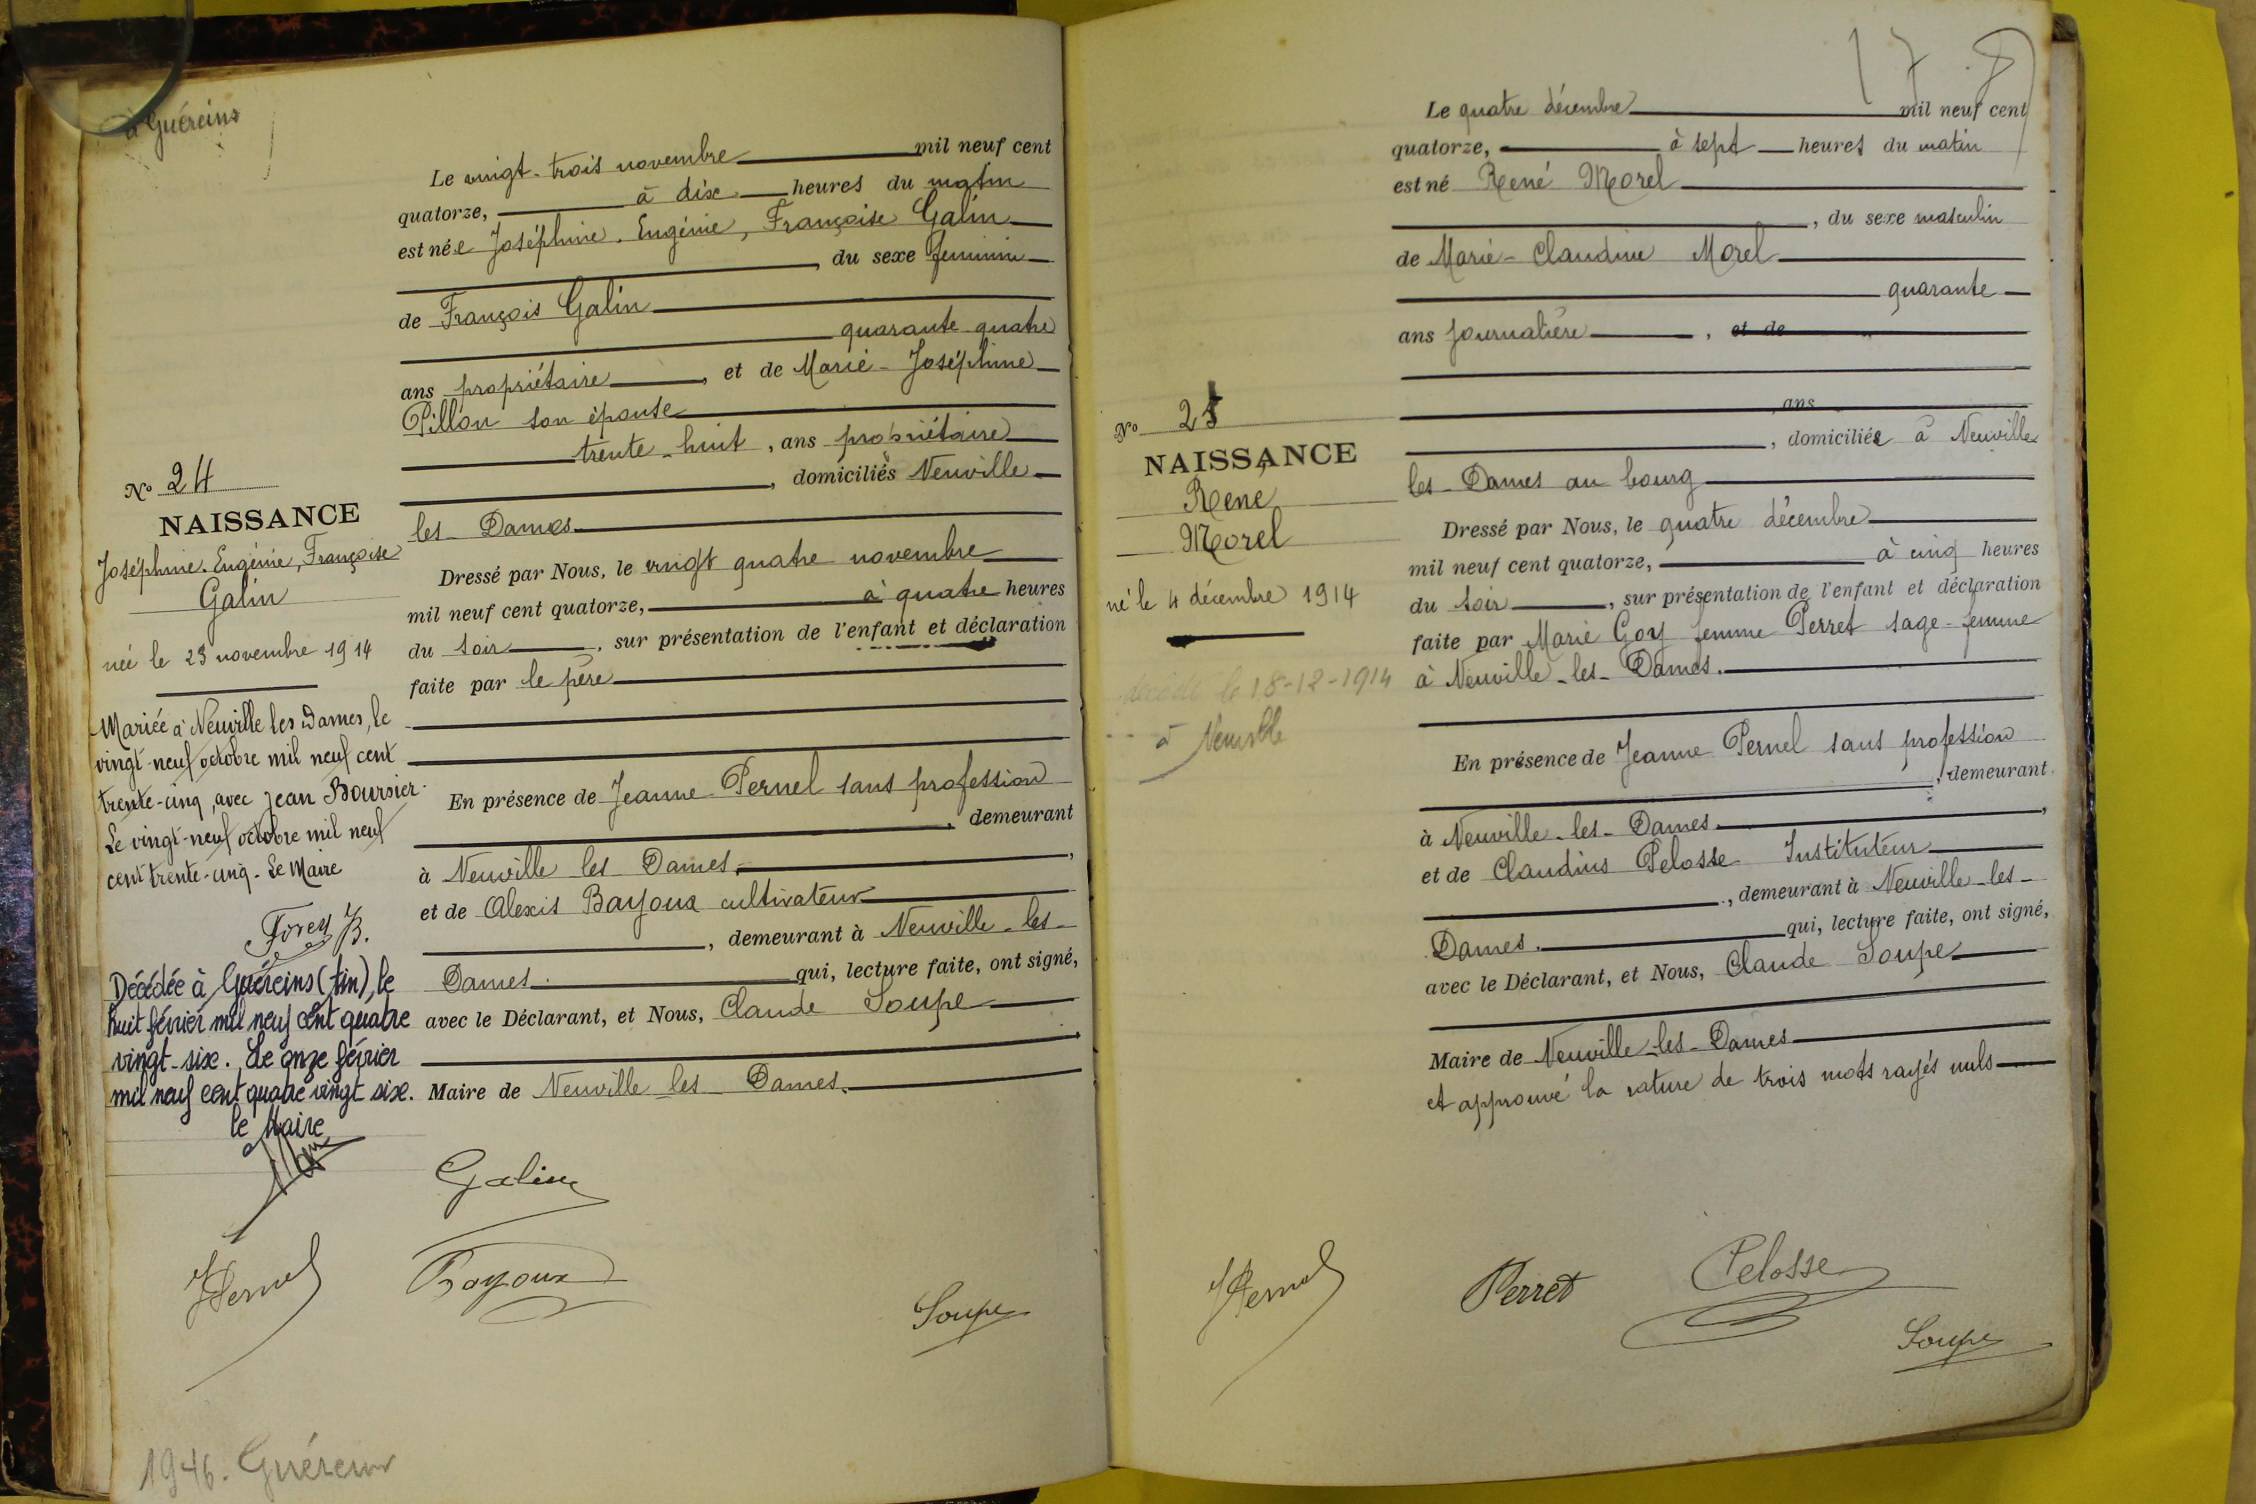 à Guéreins
Le vingt-trois novembre mil neuf cent
quatorze, à dix heures du matin
est née Joséphine, Eugénie, Françoise Galin
, du sexe feminin
de François Galin
quarante quatre
ans propriétaire, et de Marie-Joséphine
Pillon son épouse
trente-huit, ans propriétaire
, domiciliés Neuville
les Dames
Dressé par Nous, le vingt quatre novembre
mil neuf cent quatorze, à quatre heures
du soir, sur présentation de l'enfant et déclaration
faite par le père
En présence de Jeanne Pernel sans profession
, demeurant
à Neuville les Dames,
et de Alexis Bayoux cultivateur
, demeurant à Neuville-les-
Dames. qui, lecture faite, ont signé,
avec le Déclarant, et Nous, Claude Soupe
Maire de Neuville les Dames.
No 24
NAISSANCE
Joséphine, Eugénie, Françoise
Galin
née le 23 novembre 1914
Mariée à Neuville les Dames, le
vingt-neuf octobre mil neuf cent
trente-cinq, avec Jean Boursier.
Le vingt-neuf octobre mil neuf
cent trente-cinq. Le Maire
Forey B.
Décédée à Guéreins (Ain), le
huit février mil neuf cent quatre
vingt-six. Le onze février
mil neuf cent quatre vingt six.
le Maire
Galin
JPernel
Bayoux
Soupe
1946. Guéreins
17
Le quatre décembre mil neuf cent
quatorze, à sept heures du matin
est né René Morel
, du sexe masculin
de Marie-Claudine Morel
quarante
ans journalière, et de
ans
, domiciliée à Neuville
les-Dames au bourg
Dressé par Nous, le quatre décembre
mil neuf cent quatorze, à cinq heures
du soir, sur présentation de l'enfant et déclaration
faite par Marie Goy femme Perret sage-femme
à Neuville-les-Dames.
En présence de Jeanne Pernel sans profession
, demeurant
à Neuville-les-Dames,
et de Claudius Pelosse Instituteur
, demeurant à Neuville-les-
Dames. qui, lecture faite, ont signé,
avec le Déclarant, et Nous, Claude Soupe
Maire de Neuville-les-Dames
et approuvé la rature de trois mots rayés nuls
No 25
NAISSANCE
René
Morel
né le 4 décembre 1914
décédé le 18-12-1914
à Neuville
JPernel
Perret
Pelosse
Soupe